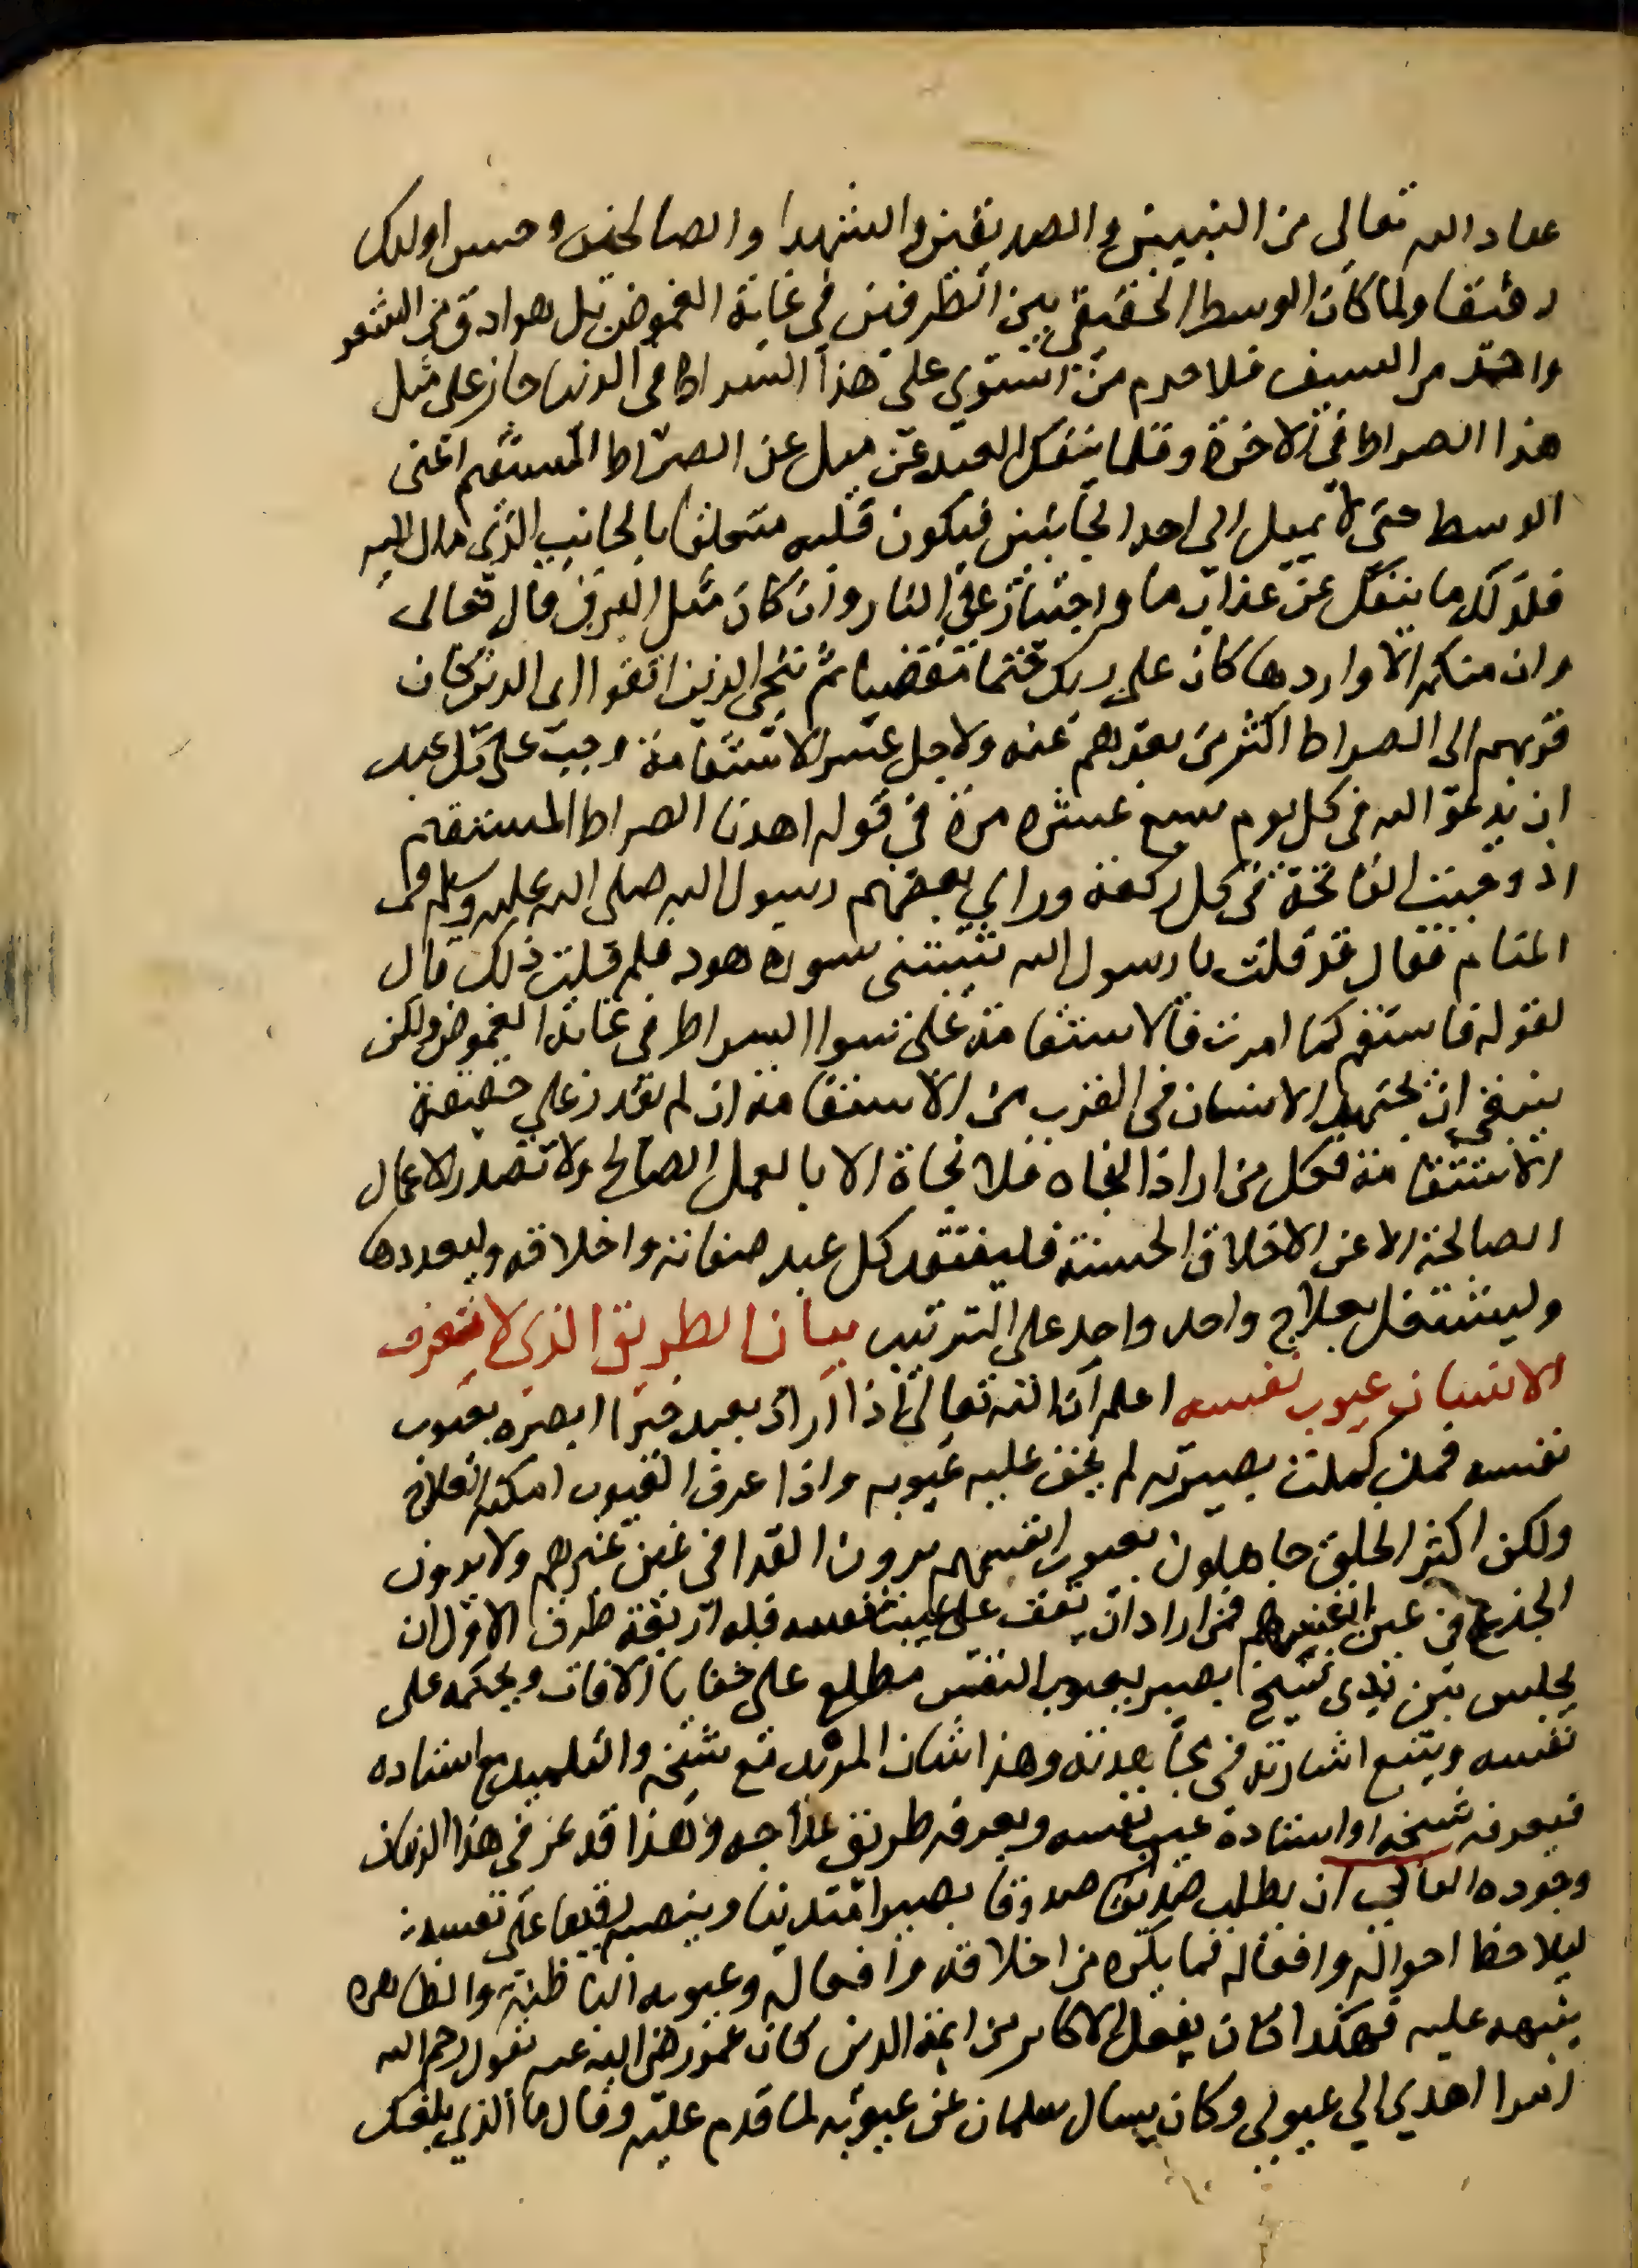 عباد الله تعالى من النبيين والصديقين والشهدا والصالحين وحسن اولئك
رفيقا ولما كان الوسط الحقيقي بين الطرفين في غاية الغموض بل هو ادق من الشعر
واحد من السيف فلا جرم من استوى على هذا السراط في الدنيا جاز على مثل
هذا الصراط في الاخرة وقلما ينفك العبد عن ميل عن الصراط المستقيم اعنى
الوسط حتى لا يميل الى احد الجانبين فيكون قلبه متعلقا بالجانب الذي مال اليه
فلذلك ما ينفك عن عذاب ما واجتياز على النار وان كان مثل البرق قال تعالى
وان منكم الا واردها كان على ربك حتما مقضيا ثم ننجي الذين اتقوا اى الذين كان
قربهم الى الصراط اكثر من بعدهم عنه ولاجل عسر الاستقامة وجب على كل عبد
ان يدعو الله في كل يوم سبع عشره مرة في قوله اهدنا الصراط المستقيم
اذ وجبت الفاتحة في كل ركعة وراي بعضهم رسول الله صلى الله عليه وسلم في
المنام فقال قد قلت يا رسول الله شيبتنى سورة هود فلم قلت ذلك قال
لقوله فاستقم كما امرت فالاستقامة على سوا السراط في غاية الغموض ولكن
ينبغي ان يجتهد الانسان في القرب من الاستقامة ان لم يقدر على حقيقة
الاستقامة فكل من اراد النجاه فلا نجاة الا بالعمل الصالح ولا تصدر الاعمال
الصالحة الا عن الاخلاق الحسنة فليفتقد كل عبد صفاته واخلاقه وليعددها
وليشتغل بعلاج واحد واحد على الترتيب بيان الطريق الذي لا يتعرف
الانسان عيوب نفسه اعلم ان الله تعالى اذا اراد بعبد خيرا ابصره بعيوب
نفسه فمن كملت بصيرته لم يخف عليه عيوبه واذا عرف العيوب امكنه العلاج
ولكن اكثر الخلق جاهلون بعيوب انفسهم يرون القذا في عين غيرهم ولا يرون
الجذع في عين انفسهم فمن اراد ان يقف على عيب نفسه فله اربعة طرق الاول ان
يجلس بين يدي شيخ بصير بعيوب النفس مطلع على خفايا الافات ويحكمه على
نفسه ويتبع اشارته في مجاهدته وهذا شان المريد مع شيخه والتلميذ مع استاده
فيعرفه شيخه او استاده عيب نفسه ويعرفه طريق علاجه وهذا قد عز في هذا الزمان
وجوده الثاني ان يطلب صديقا صدوقا بصيرا متدينا وينصبه رقيبا على نفسه
ليلاحظ احواله وافعاله فما يكره من اخلاقه وافعاله وعيوبه الباطنة والظاهره
ينبهه عليه فهكذا كان يفعل الاكابر من ايمة الدين كان عمر رضى الله عنه يقول رحم الله
امرا اهدي الي عيوبي وكان يسال سلمان عن عيوبه لما قدم عليه وقال ما الذي بلغك